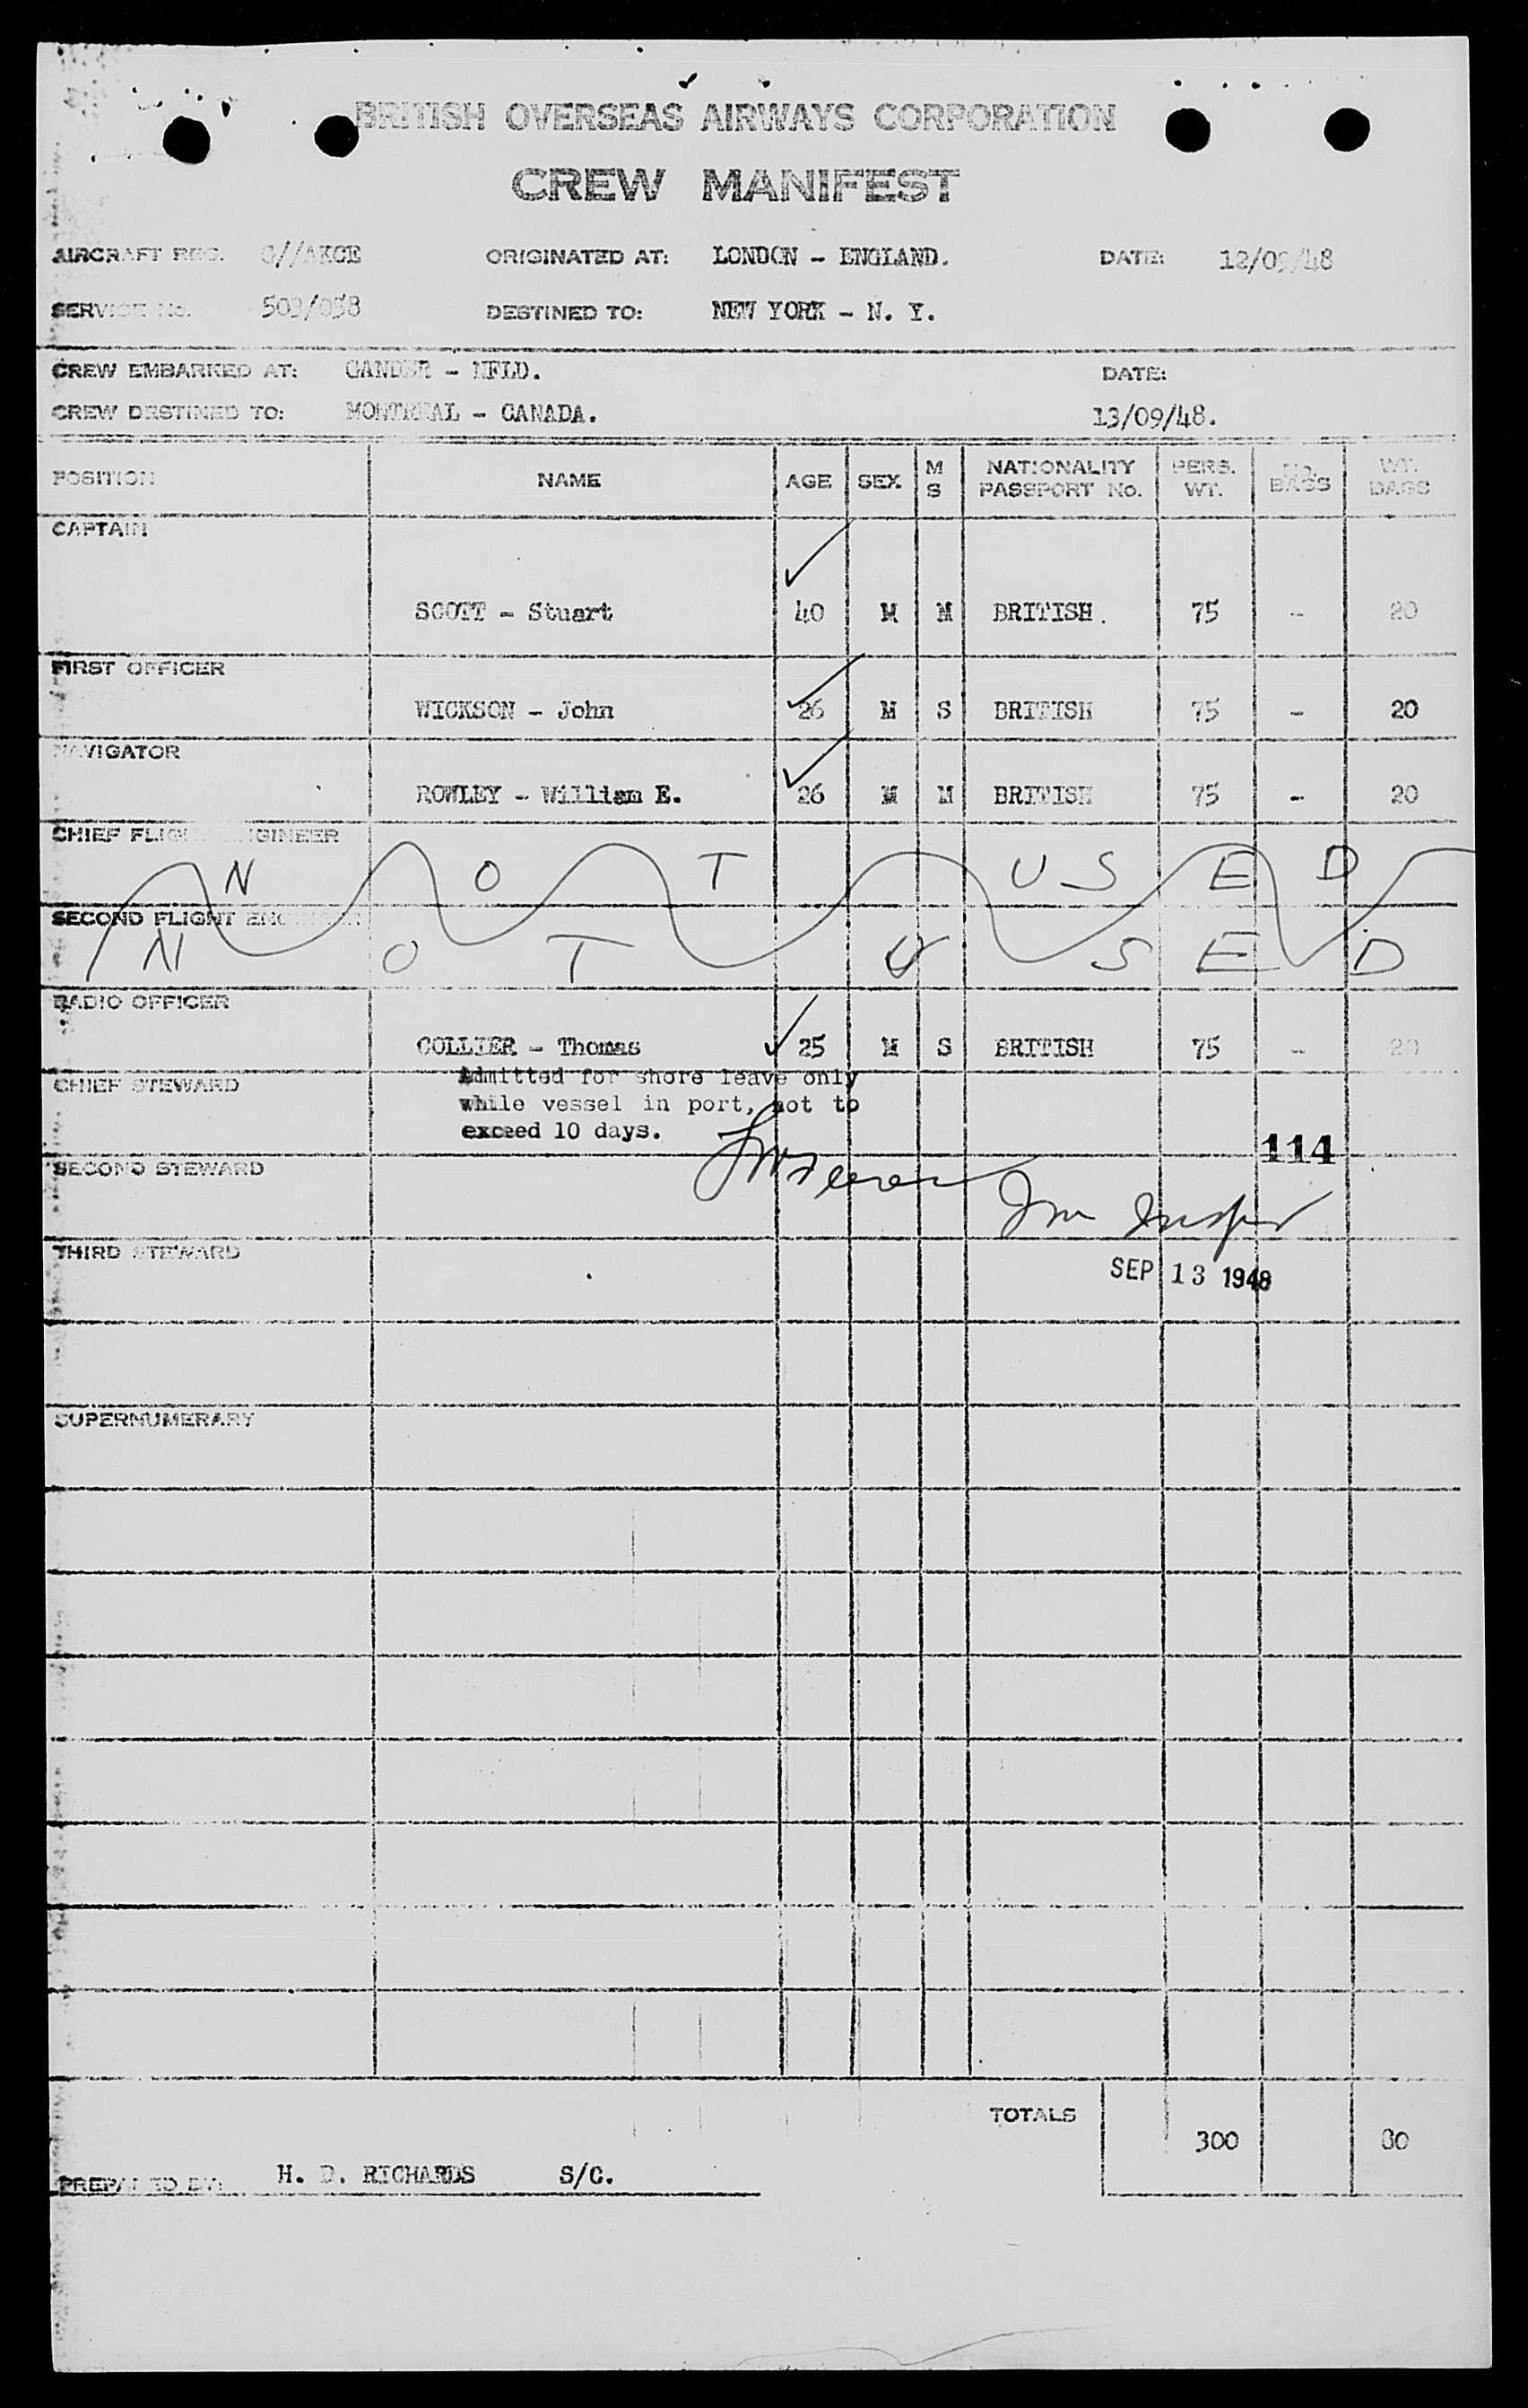 BRITISH OVERSEAS AIRWAYS CORPORATION
CREW MANIFEST
AIRCRAFT REG. G//AKCE ORIGINATED AT: LONDON - ENGLAND. DATE: 12/09/48
SERVICE No. 503/058 DESTINED TO: NEW YORK - N. Y.
CREW EMBARKED AT: GANDER - NFLD. DATE:
CREW DESTINED TO: MONTREAL - CANADA. 13/09/48.
POSITION NAME AGE SEX M S NATIONALITY PASSPORT No. PERS. WT. No. BAGS WT. BAGS
CAPTAIN
SCOTT - Stuart 40 M M BRITISH. 75 - 20
FIRST OFFICER
WICKSON - John 26 M S BRITISH 75 - 20
NAVIGATOR
ROWLEY - William E. 26 M M BRITISH 75 - 20
CHIEF FLIGHT ENGINEER
N O T U S E D
SECOND FLIGHT ENGINEER
N O T U S E D
RADIO OFFICER
COLLIER - Thomas 25 M S BRITISH 75 - 20
CHIEF STEWARD
Admitted for shore leave only
while vessel in port, not to
exceed 10 days.
114
SECOND STEWARD
Imm Inspr
THIRD STEWARD
SEP 13 1948
SUPERNUMERARY
TOTALS
300 80
PREPARED BY: H. D. RICHARDS S/C.